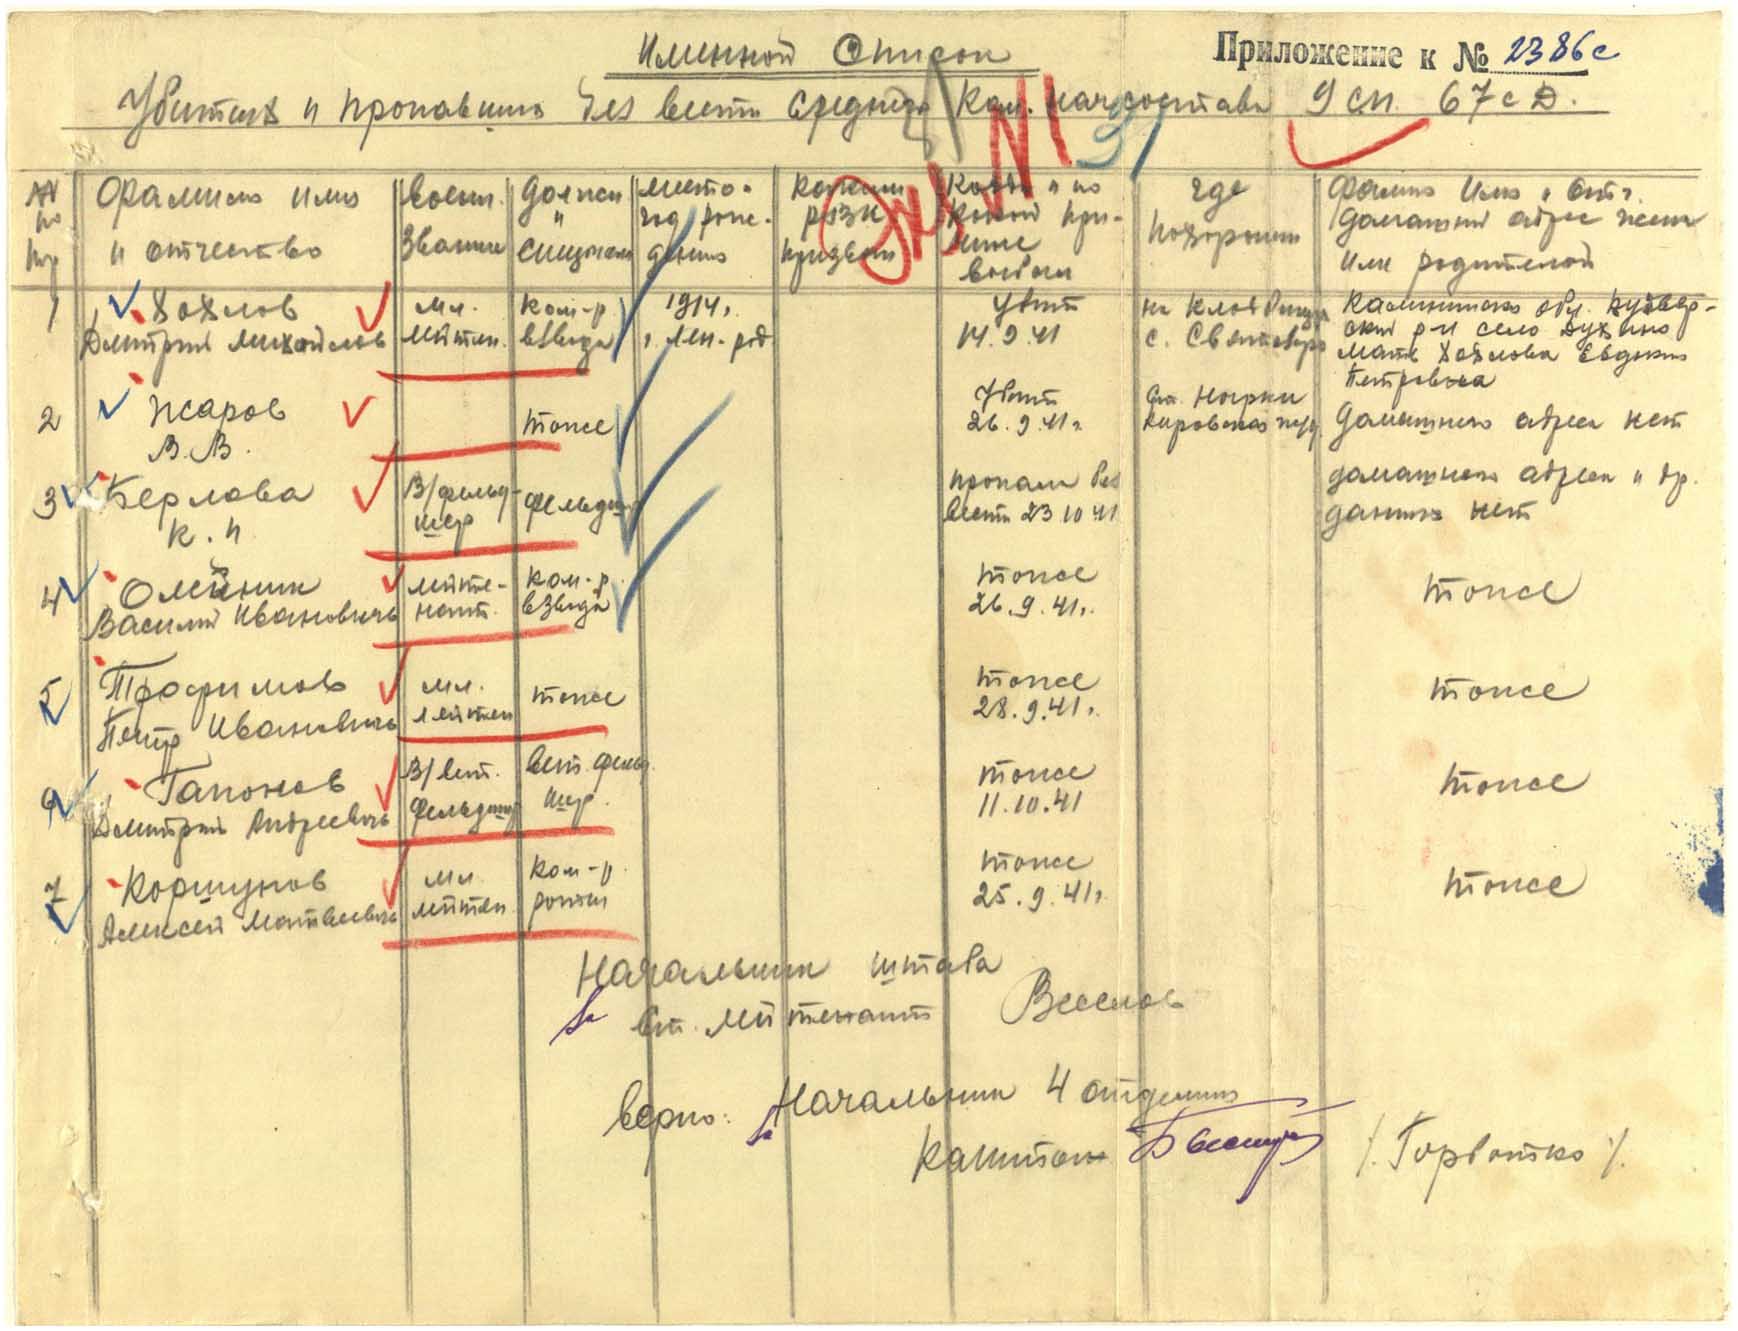 Именной Список
Приложение к № 2386с
Убитых и пропавших без вести среднего ком. начсостава 9 сп. 67 сд.
№№ по пор
Фамилия имя и отчество
Воен. звание
Должн и специальн
Место и год рождения
Каким РВК призван
Когда и по какой причине выбыл
где похоронен
Фамил Имя и отч. домашний адрес жены или родителей
1
Хохлов
Дмитрий Михайлов
мл. лейтен.
ком-р взвода
1914г.
г. Лен. род
Убит
14.9.41
на кладбище
с.
Калининска обл.
ский р-н село Духино
мать Хохлова Евдокия
Петровна
2
Жаров
В.В.
тоже
Убит
26.9.41г.
ст.
Кировской ж/д.
домашнего адреса нет
3
Берлова
К. П
В/фельдшер
фельдш
пропала без
вести 23 10 41
домашнего адреса и др.
данных нет
4
Олейник
Василий Иванович
лейтенант.
ком-р. взвода
тоже
26.9.41г.
тоже
5
Трофимов
Петр Иванович
мл. лейтен
тоже
тоже
28.9.41г.
тоже
6
Гапонов
Дмитрий Андреевич
В/вет. фельдшер
вет. фельдшер.
тоже
11.10.41
тоже
7
Коршунов
Алексей Матвеевич
мл. лейтен
ком-р. роты
тоже
25.9.41г.
тоже
Начальник штаба
ст. лейтенант Веселов
Верно: Начальник 4 отделния
Капитан /. Горватко /.